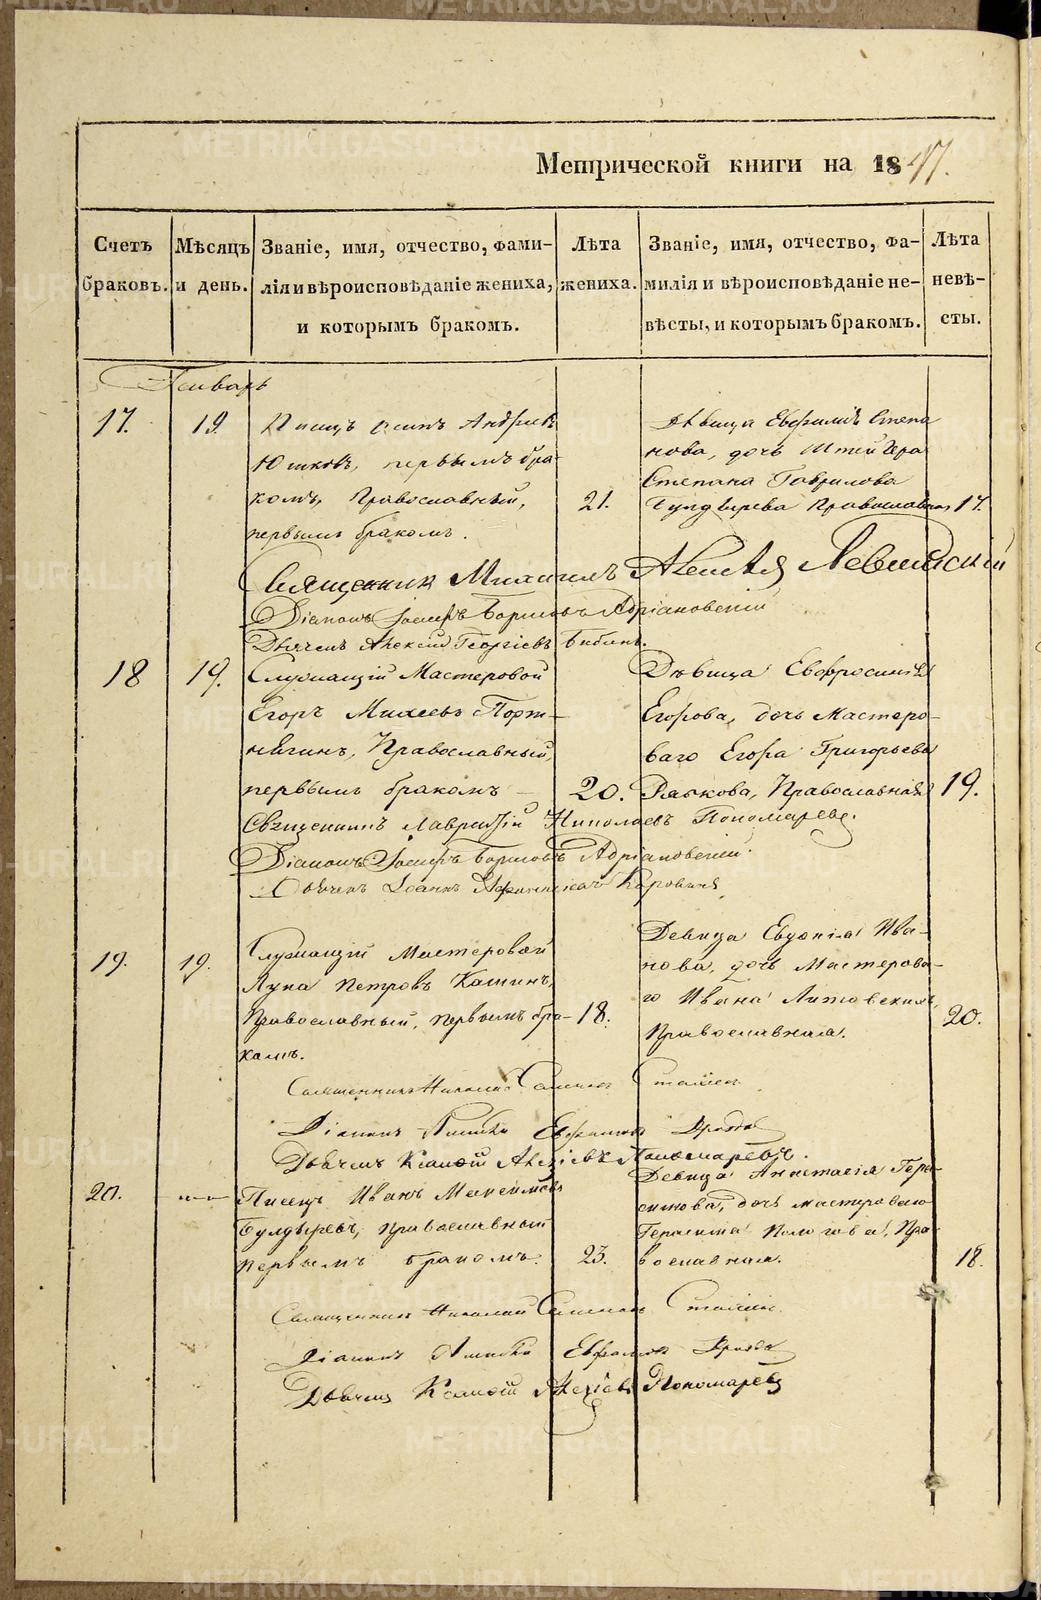 METRIKI.GASO-URAL.RU
Метрической книги на 1847.
Счетъ браковъ.
Мѣсяцъ и день.
Званіе, имя, отчество, фами-
лія и вѣроисповѣданіе жениха,
и которымъ бракомъ.
Лѣта жениха.
Званіе, имя, отчество, фа-
милія и вѣроисповѣданіе не-
вѣсты, и которымъ бракомъ.
Лѣта невѣ-
сты.
Генварь
17. 19. Писецъ Осипъ Андреев
Юшковъ, первымъ бра-
комъ, Православный,
первымъ бракомъ.
21.
Дѣвица Евфимія Степа
нова, дочь Штейгера
Степана Гаврилова
Булдырева Православная
17.
Священникъ Михаилъ Левитскій
Діаконъ Іосифъ Борисовъ Адріановскій
Дьячекъ Алексій Георгіевъ Бибинъ.
18 19. Служащій Мастеровой
Егоръ Михеевъ Порт-
нягинъ, Православный,
первымъ бракомъ
20.
Дѣвица Евфросинія
Егорова, дочь мастеро-
ваго Егора Григорьева
Православная
19.
Священникъ Лаврентій Николаевъ Пономаревъ.
Діаконъ Іосифъ Борисовъ Адріановскій.
Дьячекъ Іоаннъ Коровинъ
19. 19. Служащій Мастеровой
Лука Петровъ Кашинъ,
Православный, первымъ бра-
комъ.
18.
Девица Евдокія Ива-
нова, дочь Мастерова-
го Ивана Литовскихъ,
Православная.
20.
Священникъ Николай
Діаконъ
Дьячекъ Алексіевъ Пономаревъ.
20. Писецъ Иванъ Максимовъ
Булдыревъ, православный
первымъ бракомъ.
23.
Девица Анастасія Гера-
симова, дочь мастероваго
Герасима Пологова, Пра
вославная.
18.
Священникъ Николай
Діаконъ
Дьячекъ Алексіевъ Пономаревъ